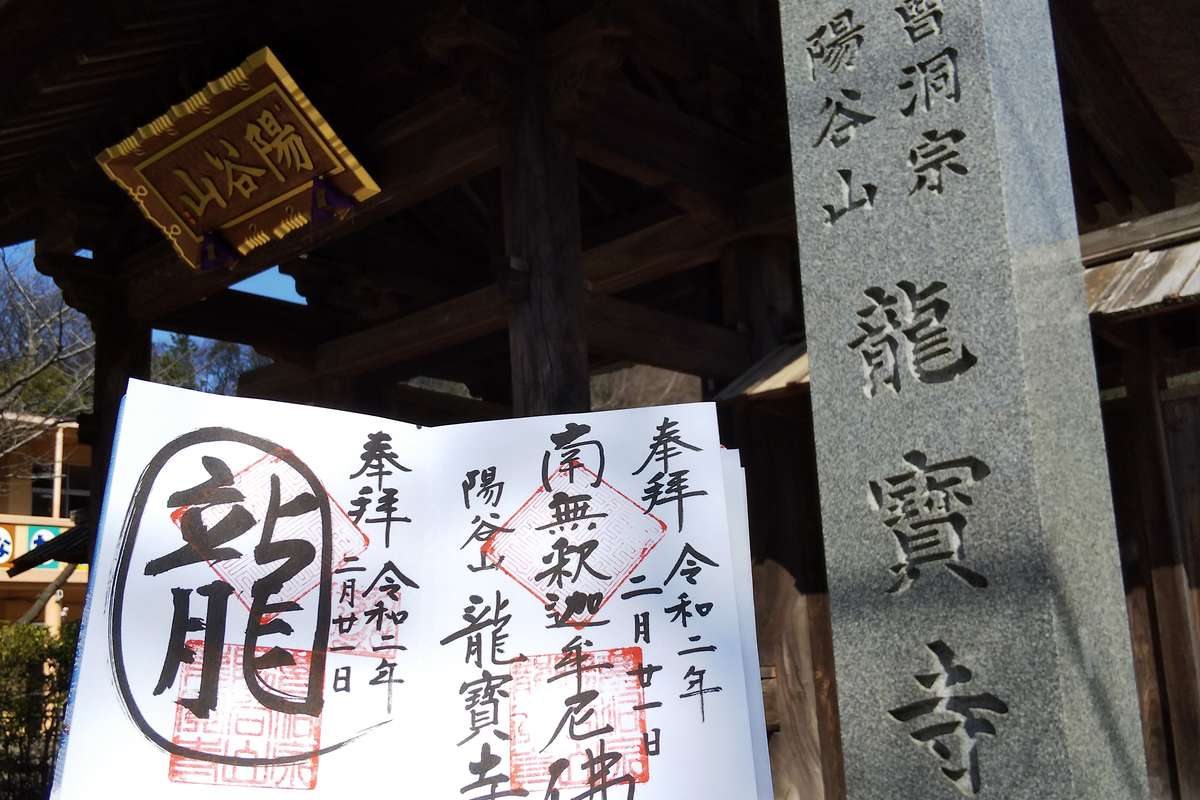 陽谷山
曹洞宗
陽谷山
龍寶寺
奉拝
令和二年
二月廿一日
南無釈迦牟尼佛
陽谷山
龍寶寺
奉拝
令和二年
二月廿一日
龍